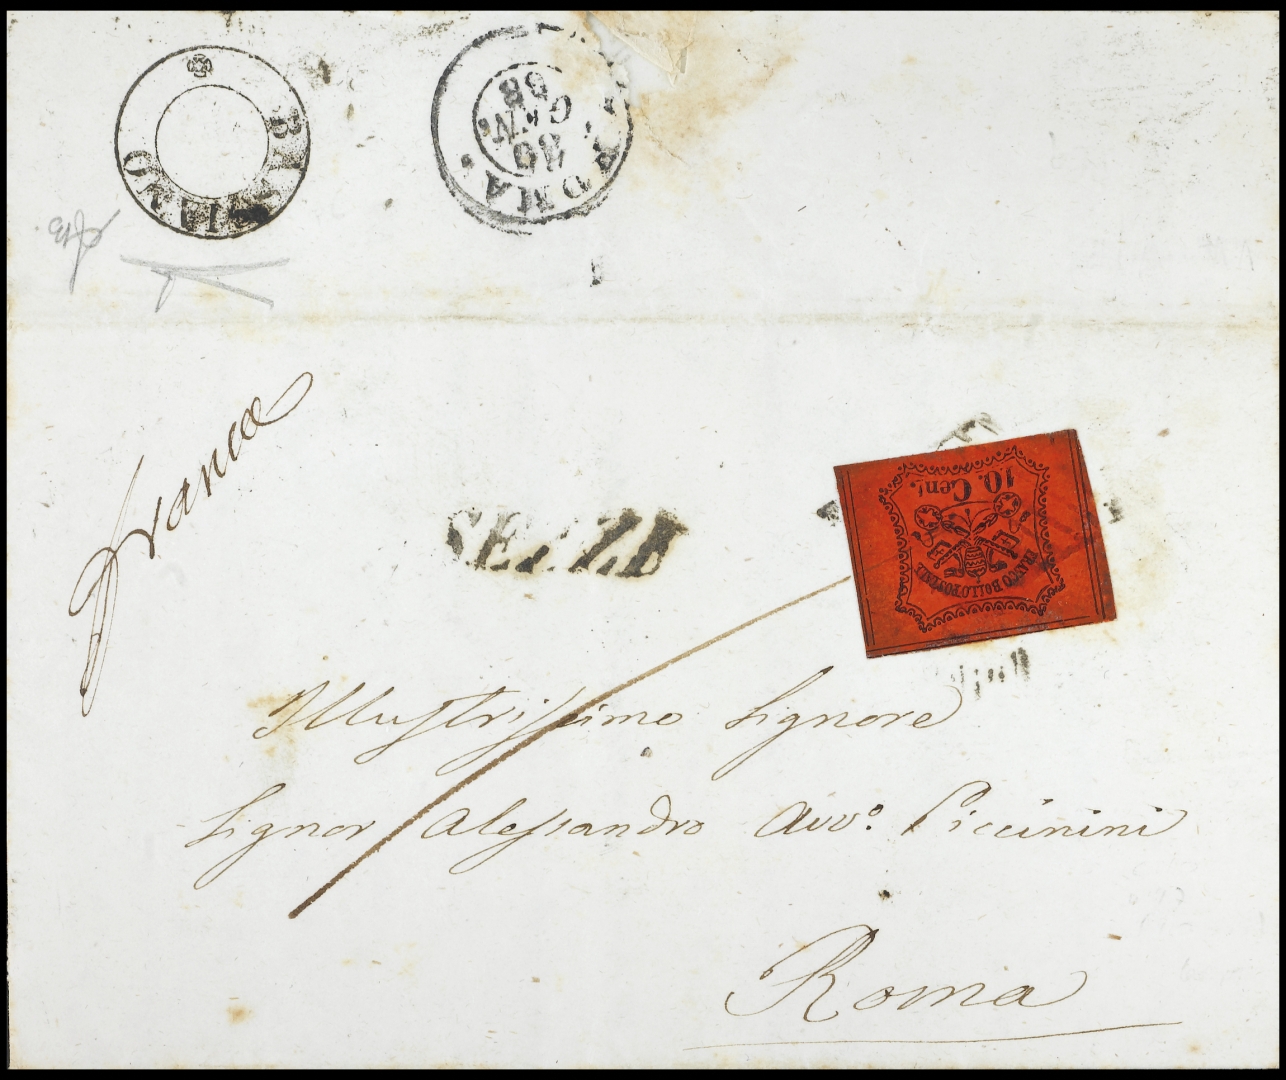 BASSIANO
ROMA
30
GEN
68
franca
SEZZE
10. Cent.
FRANCO BOLLO POSTALE
Illustrissimo Signore
Signor Alessandro Avvo. Piccinini
Roma